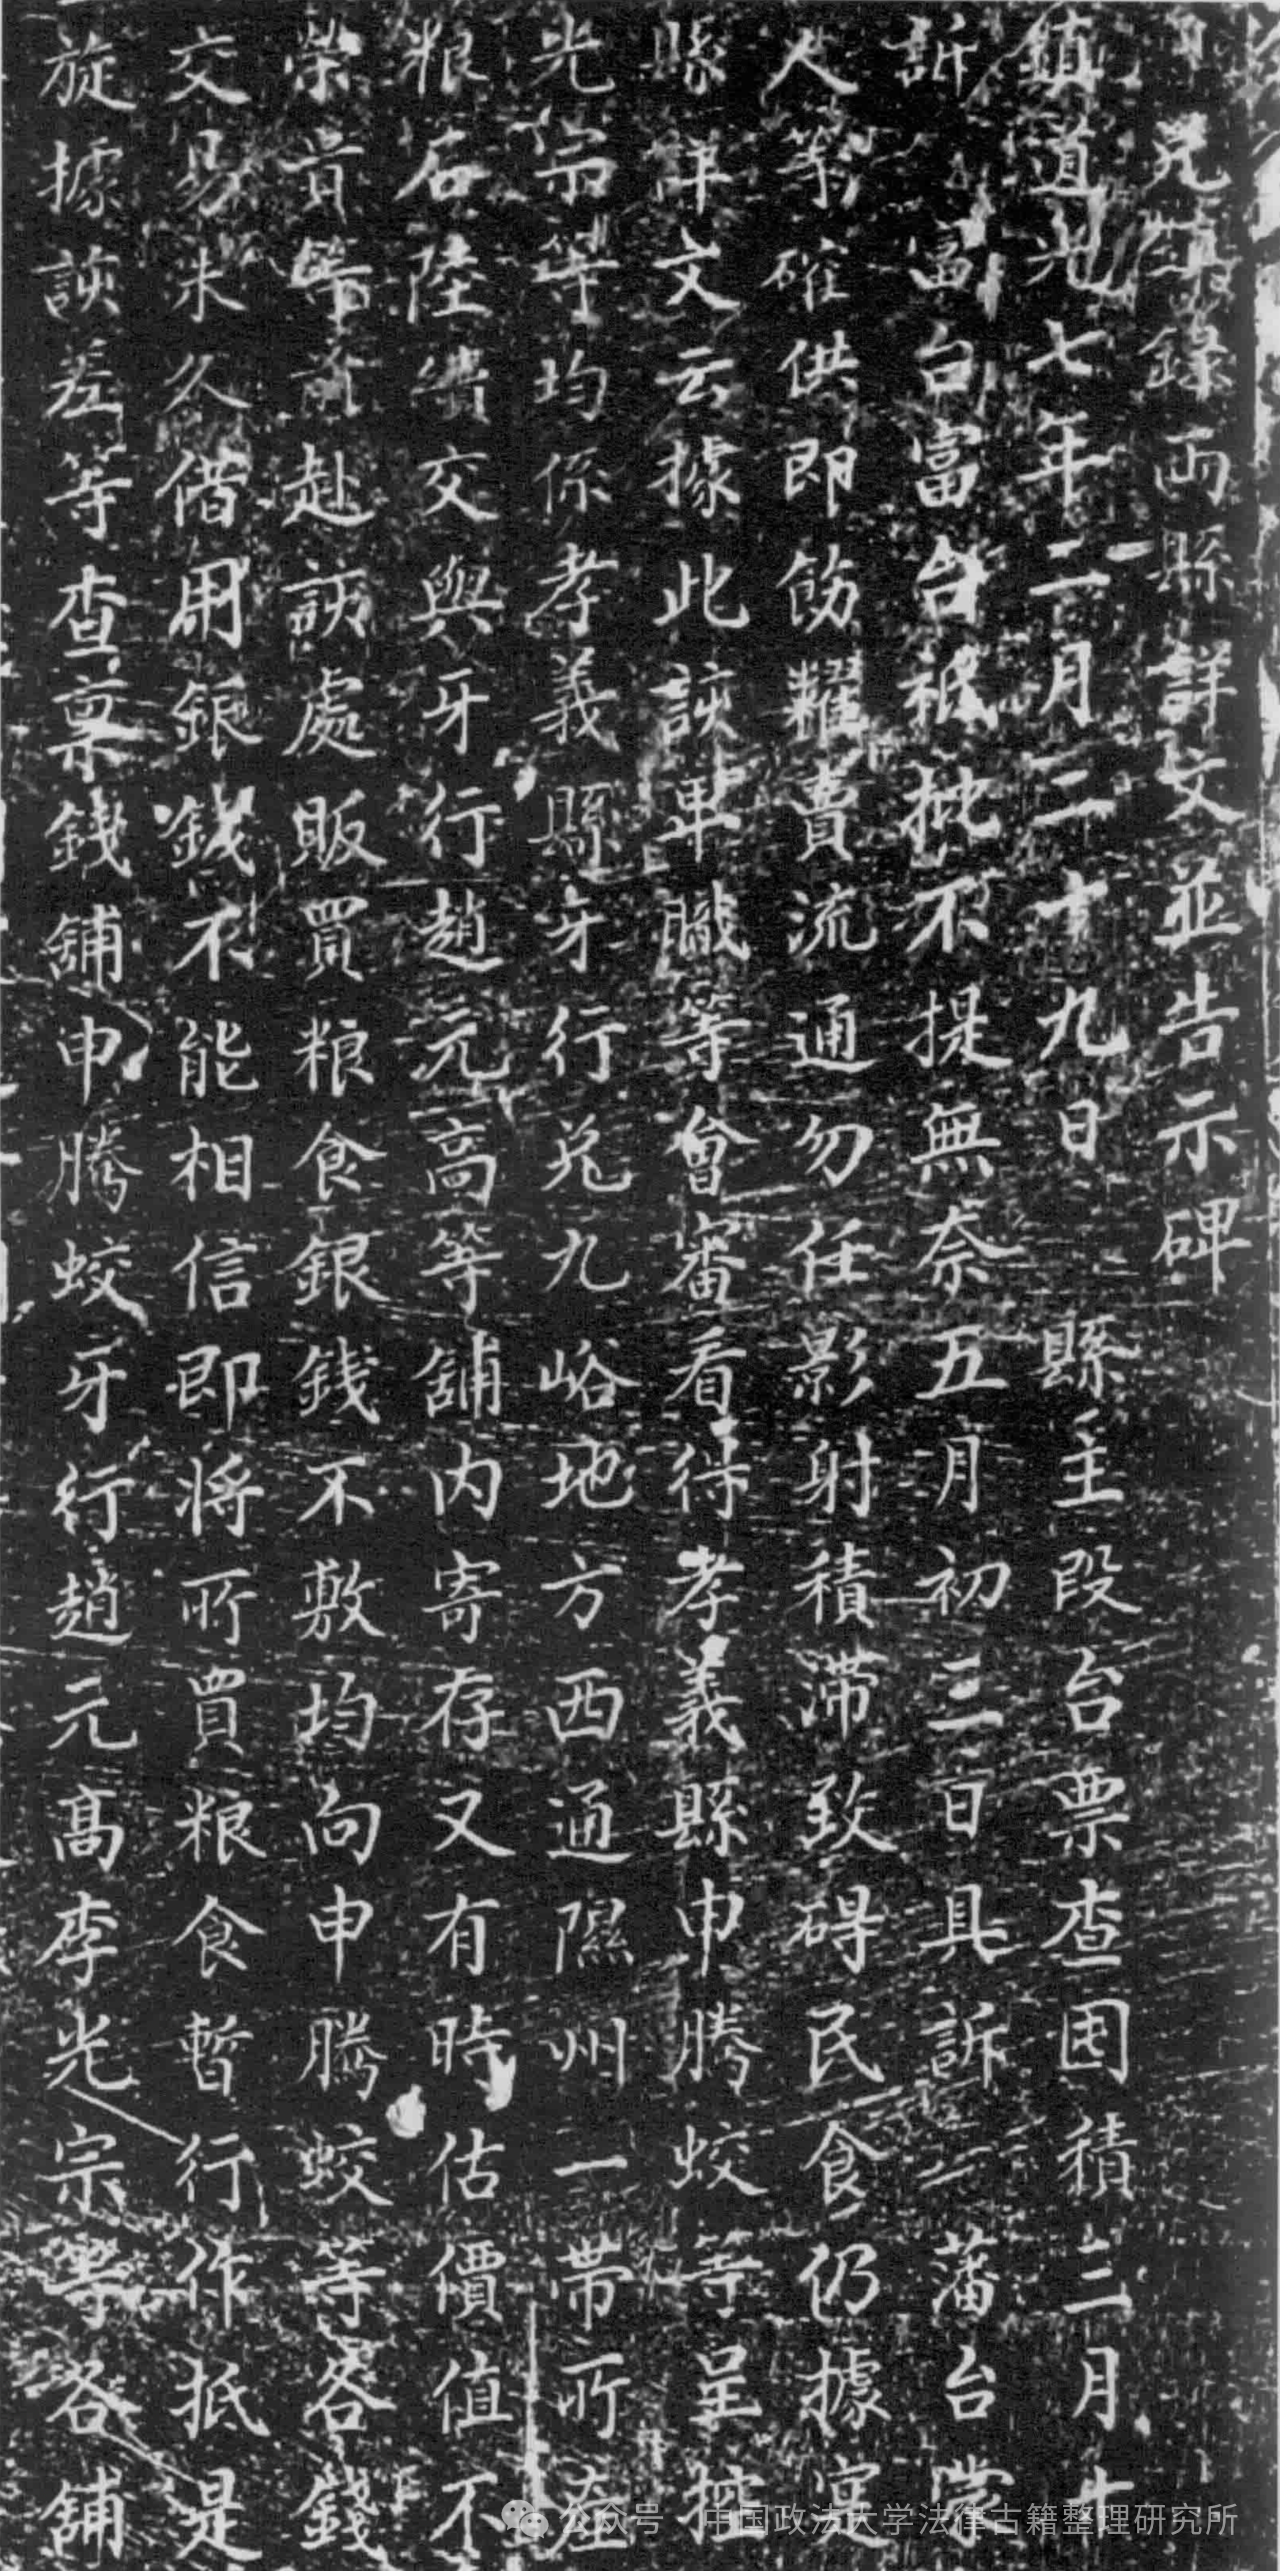 兑鎮錄兩縣詳文並告示碑
鎮道光七年二月二十九日縣主段台票查囤積三月十
訴富白富台祇批不提無奈五月初三日具訴藩台蒙
人等確供即飭糶賣流通勿任影射積滯致碍民食仍據寔
縣詳文云據此該卑職等會審看得孝義縣申騰蛟等呈控
光宗等均係孝義縣牙行兑九峪地方西通隰州一帶所產
粮石陸續交與牙行趙元高等舖内寄存又有時估價值不
榮賞等前赴訪處販買粮食銀錢不敷均向申騰蛟等各錢
交易未久借用銀錢不能相信即將所買粮食暫行作抵是
旋據該差等查稟錢舖申騰蛟牙行趙元高李光宗等各舖
公众号 中国政法大学法律古籍整理研究所